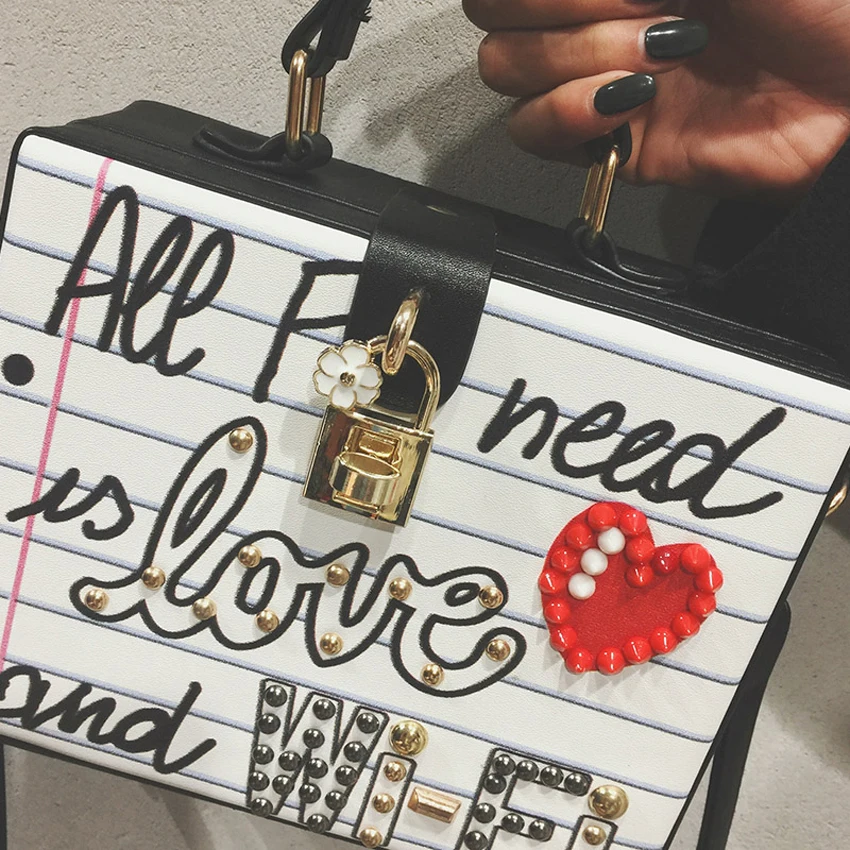 All need
is love
and Wi-Fi